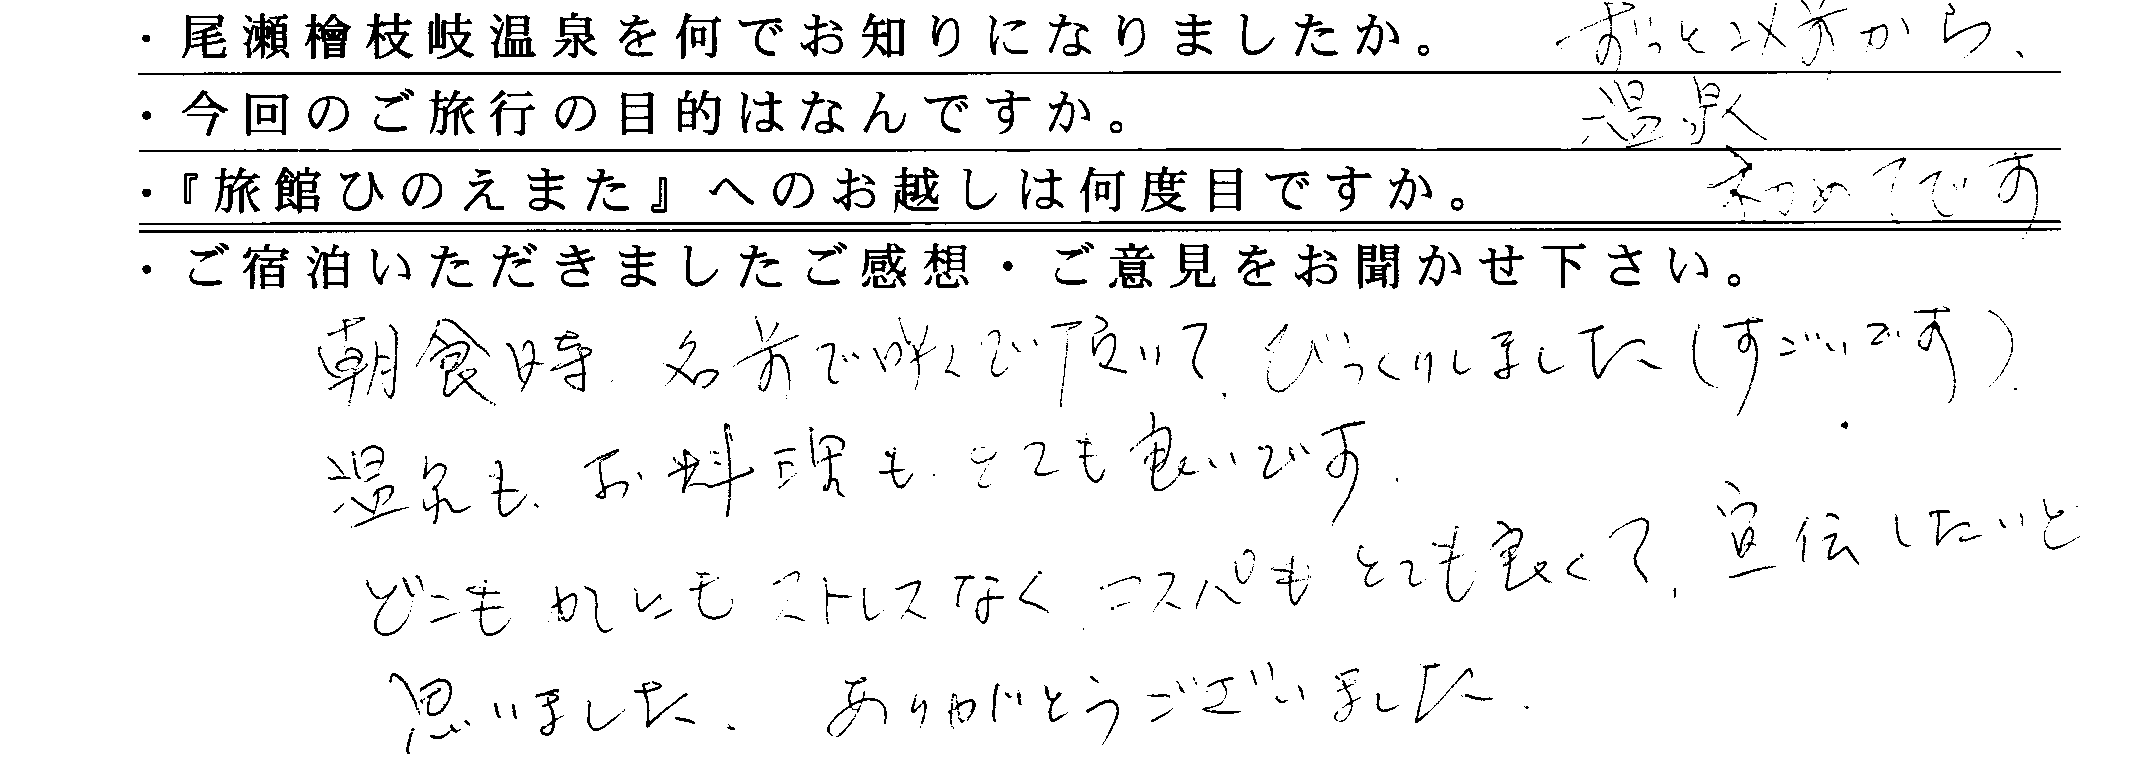 ・尾瀬檜枝岐温泉を何でお知りになりましたか。 ずっと以前から、
・今回のご旅行の目的はなんですか。 温泉
・『旅館ひのえまた』へのお越しは何度目ですか。 初めてです
・ご宿泊いただきましたご感想・ご意見をお聞かせ下さい。
朝食時、名前で呼んで頂いて、びっくりしました(すごいです).
温泉も、お料理も、とても良いです.
どこもかしこにもストレスなく、コスパもとても良くて、宣伝したいと
思いました. ありがとうございました.